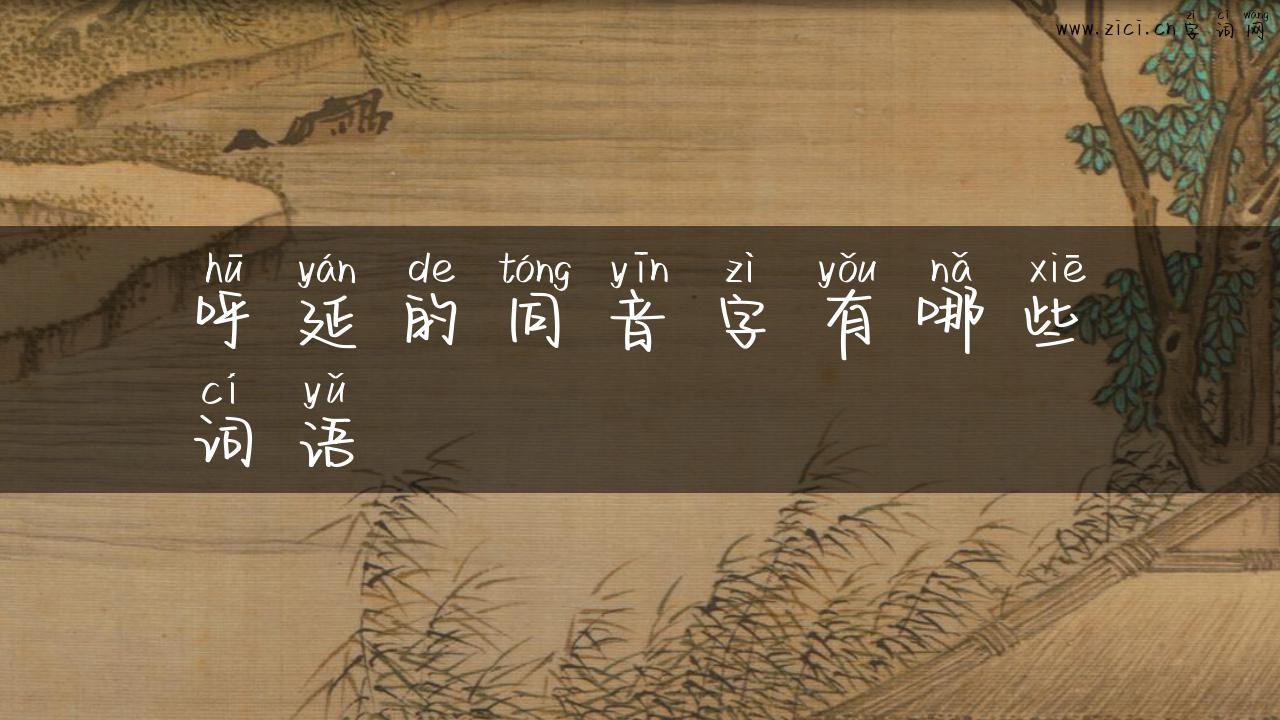 zì cí wǎng
www.zici.cn字词网
hū yán de tóng yīn zì yǒu nǎ xiē
呼延的同音字有哪些
cí yǔ
词语